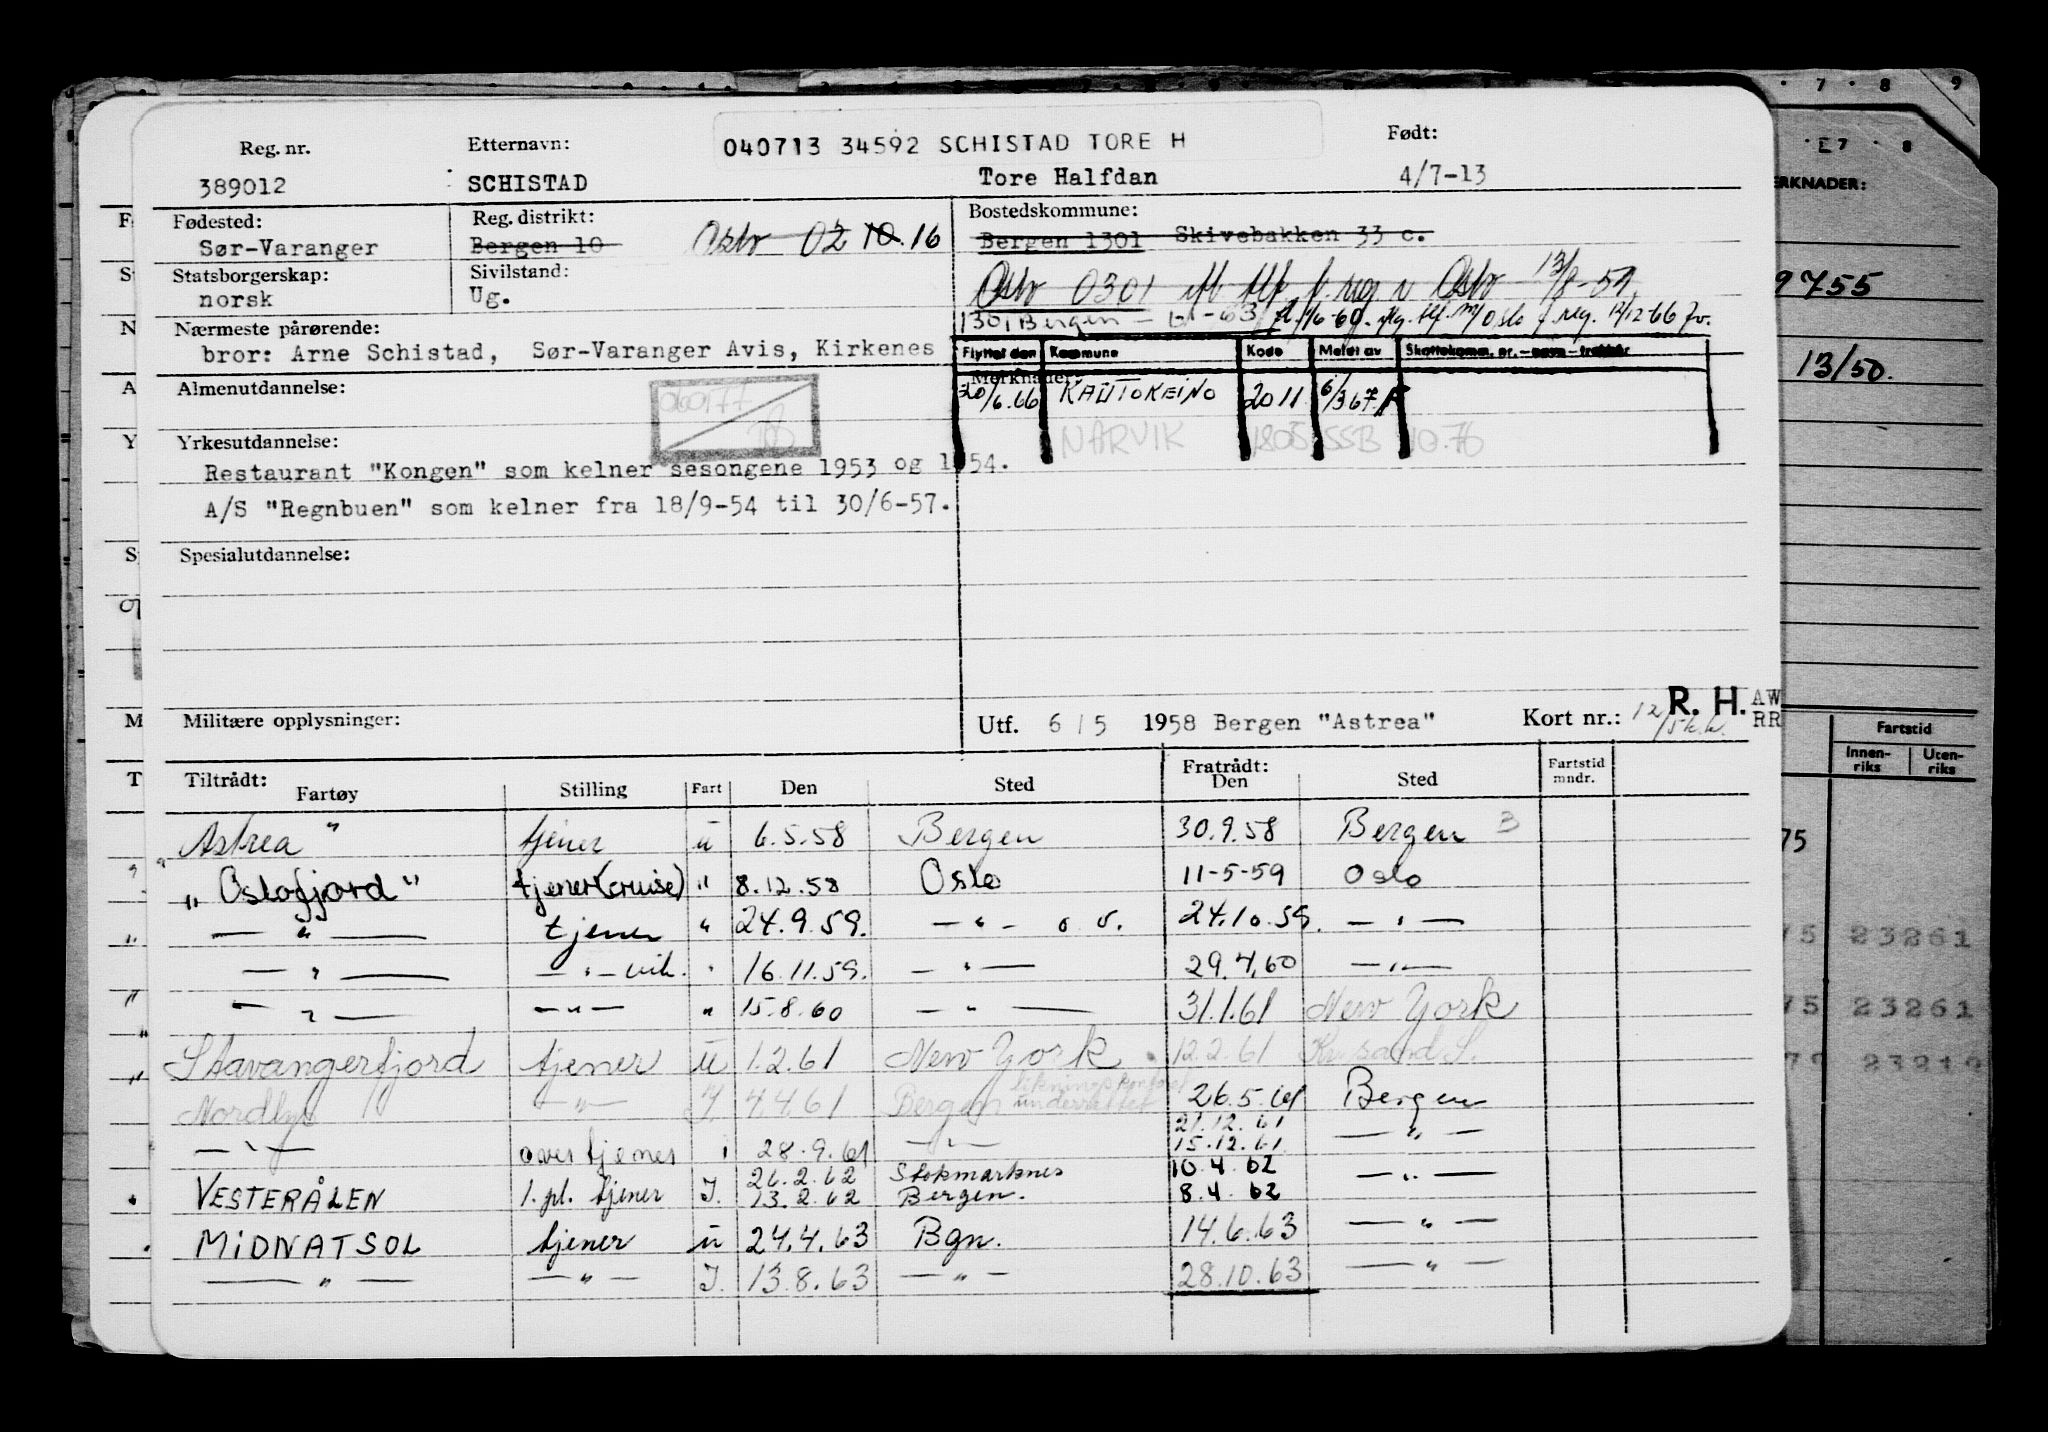 040713 34592 SCHISTAD TORE H
Reg. nr. Etternavn: Født:
389012 SCHISTAD Tore Halfdan 4/7-13
Fødested: Reg. distrikt: Bostedskommune:
Sør-Varanger Bergen 10 Oslo 02 10. 16 Bergen 1301 Skivebakken 33 c.
Statsborgerskap: Sivilstand:
norsk Ug. Oslo 0301 reg Oslo 13/8-59
Nærmeste pårørende: 1301 Bergen - 63 Oslo reg. 12/12-66
bror: Arne Schistad, Sør-Varanger Avis, Kirkenes
Flyttet den Kommune Kode Meldt av Skattekomm. nr. - navn - trekkår
Almenutdannelse: Merknader:
060177 20/6.66 KAUTOKEINO 2011 6/3 67
Yrkesutdannelse: NARVIK 1805 SSB 10.76
Restaurant "Kongen" som kelner sesongene 1953 og 1954.
A/S "Regnbuen" som kelner fra 18/9-54 til 30/6-57.
Spesialutdannelse:
R. H. AW
RR
Militære opplysninger: Utf. 6/5 1958 Bergen "Astrea" Kort nr.: 12/5
Tiltrådt: Fratrådt: Fartstid
Fartøy Stilling Fart Den Sted Den Sted mndr.
Astrea " tjener u 6.5.58 Bergen 30.9.58 Bergen 3
" Oslofjord " tjener (cruise) " 8.12.58 Oslo 11-5-59 Oslo
— " — tjener " 24.9.59. — " — 24.10.59. — " —
— " — — " — vik. " 16.11.59. — " — 29.4.60 — " —
— " — — " — " 15.8.60 — " — 31.1.61 New York
Stavangerfjord tjener u 1.2.61 New York 12.2.61 Kr.sand S.
Nordlys — " — I 4.4.61 Bergen likningskontoret underrettet 26.5.61 Bergen
21.12.61
— " — overtjener " 28.9.61 — " — 15.12.61 — " —
26.2.62 Stokmarknes 10.4.62
VESTERÅLEN 1. pl. tjener I. 13.2.62 Bergen. 8.4.62 — " —
MIDNATSOL tjener u 24.4.63 Bgn. 14.6.63 — " —
— " — — " — I. 13.8.63 — " — 28.10.63 — " —
7 8 9
E7 8
ERKNADER:
9755
13/50.
Fartstid
Innen-
riks
Uten-
riks
75
75 23261
75 23261